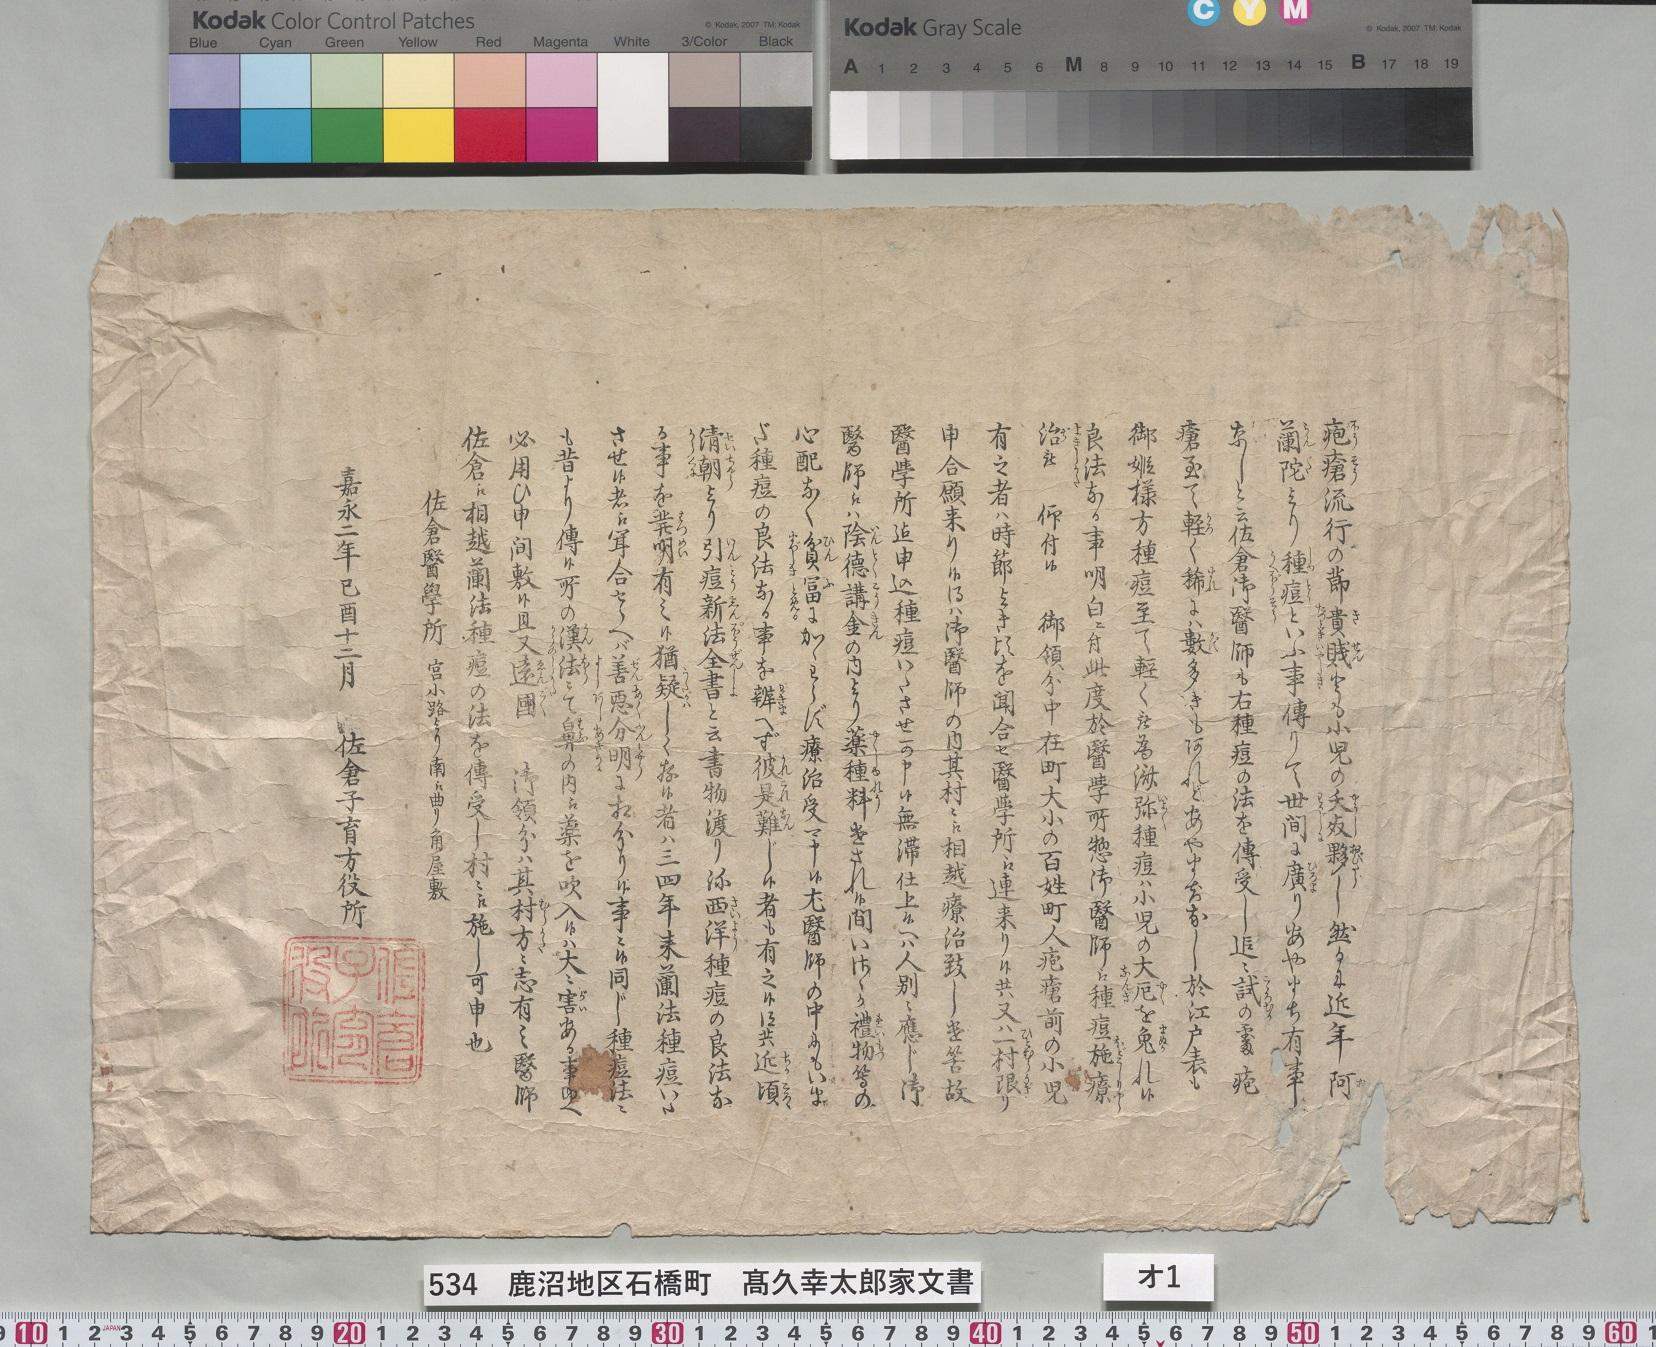 Kodak Color Control Patches
© Kodak, 2007 TM: Kodak
Blue Cyan Green Yellow Red Magenta White 3/Color Black
Kodak Gray Scale
C Y M
© Kodak, 2007 TM: Kodak
A 1 2 3 4 5 6 M 8 9 10 11 12 13 14 15 B 17 18 19
疱瘡流行の節貴賎とも小児の夭夥し然るに近年阿
蘭陀より種痘といふ事傳りて世間に廣りあやまち有事
なしと云佐倉御醫師も右種痘の法を傳受し追々試の處疱
瘡至て軽く稀には數多きも阿れどあやまちなし於江戸表も
御姫様方種痘至て軽く為濟弥種痘ハ小児の大厄を免れ候
良法なる事明白ニ付此度於醫学所惣御醫師江種痘施療
治被 仰付候 御領分中在町大小の百姓町人疱瘡前の小児
有之者ハ時節よき比を聞合せ醫学所江連来り候共又ハ一村限り
申合願来り候得ハ御醫師の内其村々江相越療治致し遣筈故
醫学所迄申込種痘いたさせ可申候無滞仕上候ヘハ人別ニ應じ御
醫師江ハ陰徳講金の内より薬種料遣され候間いささか禮物等の
心配なく貧冨にかかわらず療治受可申候尤醫師の中にもいま
だ種痘の良法なる事を辨へず彼是難じ候者も有之候得共近頃
清朝より引痘新法全書と云書物渡り弥西洋種痘の良法な
る事を発明有之候猶疑しく存候者ハ三四年来蘭法種痘いた
させ候者江聞合せらへバ善悪分明に相分り候事ニ候同じ種痘法ニ
も昔より傳候所の漢法にて鼻の内江薬を吹入候ハ大ニ害ある事ゆへ
必用ひ申間敷候且又遠國 御領分ハ其村方ニ志有之醫師
佐倉江相越蘭法種痘の法を傳受し村々江施し可申也
佐倉醫學所 宮小路より南江曲り角屋敷
嘉永二年己酉十二月 佐倉子育方役所
534 鹿沼地区石橋町 髙久幸太郎家文書
オ1
9 10 1 2 3 4 5 6 7 8 9 20 1 2 3 4 5 6 7 8 9 30 1 2 3 4 5 6 7 8 9 40 1 2 3 4 5 6 7 8 9 50 1 2 3 4 5 6 7 8 9 60